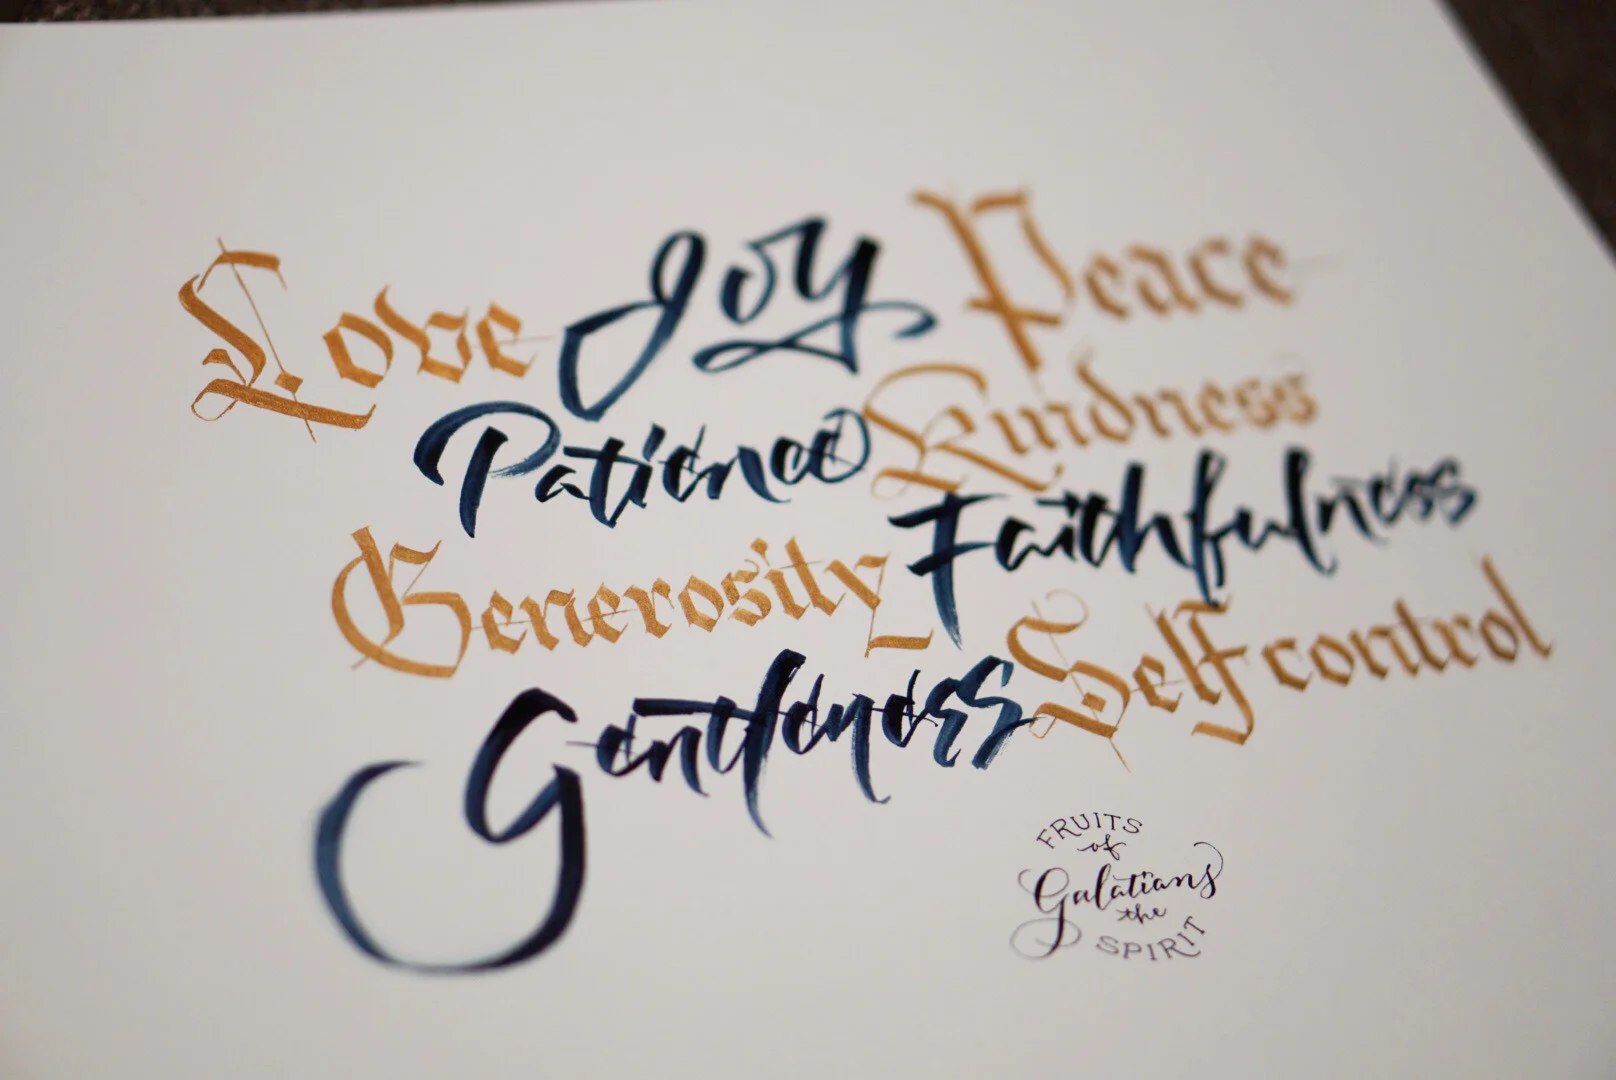 Love Joy Peace
Patience Kindness
Generosity Faithfulness
Gentleness Self control
FRUITS
of
Galatians
the
SPIRIT